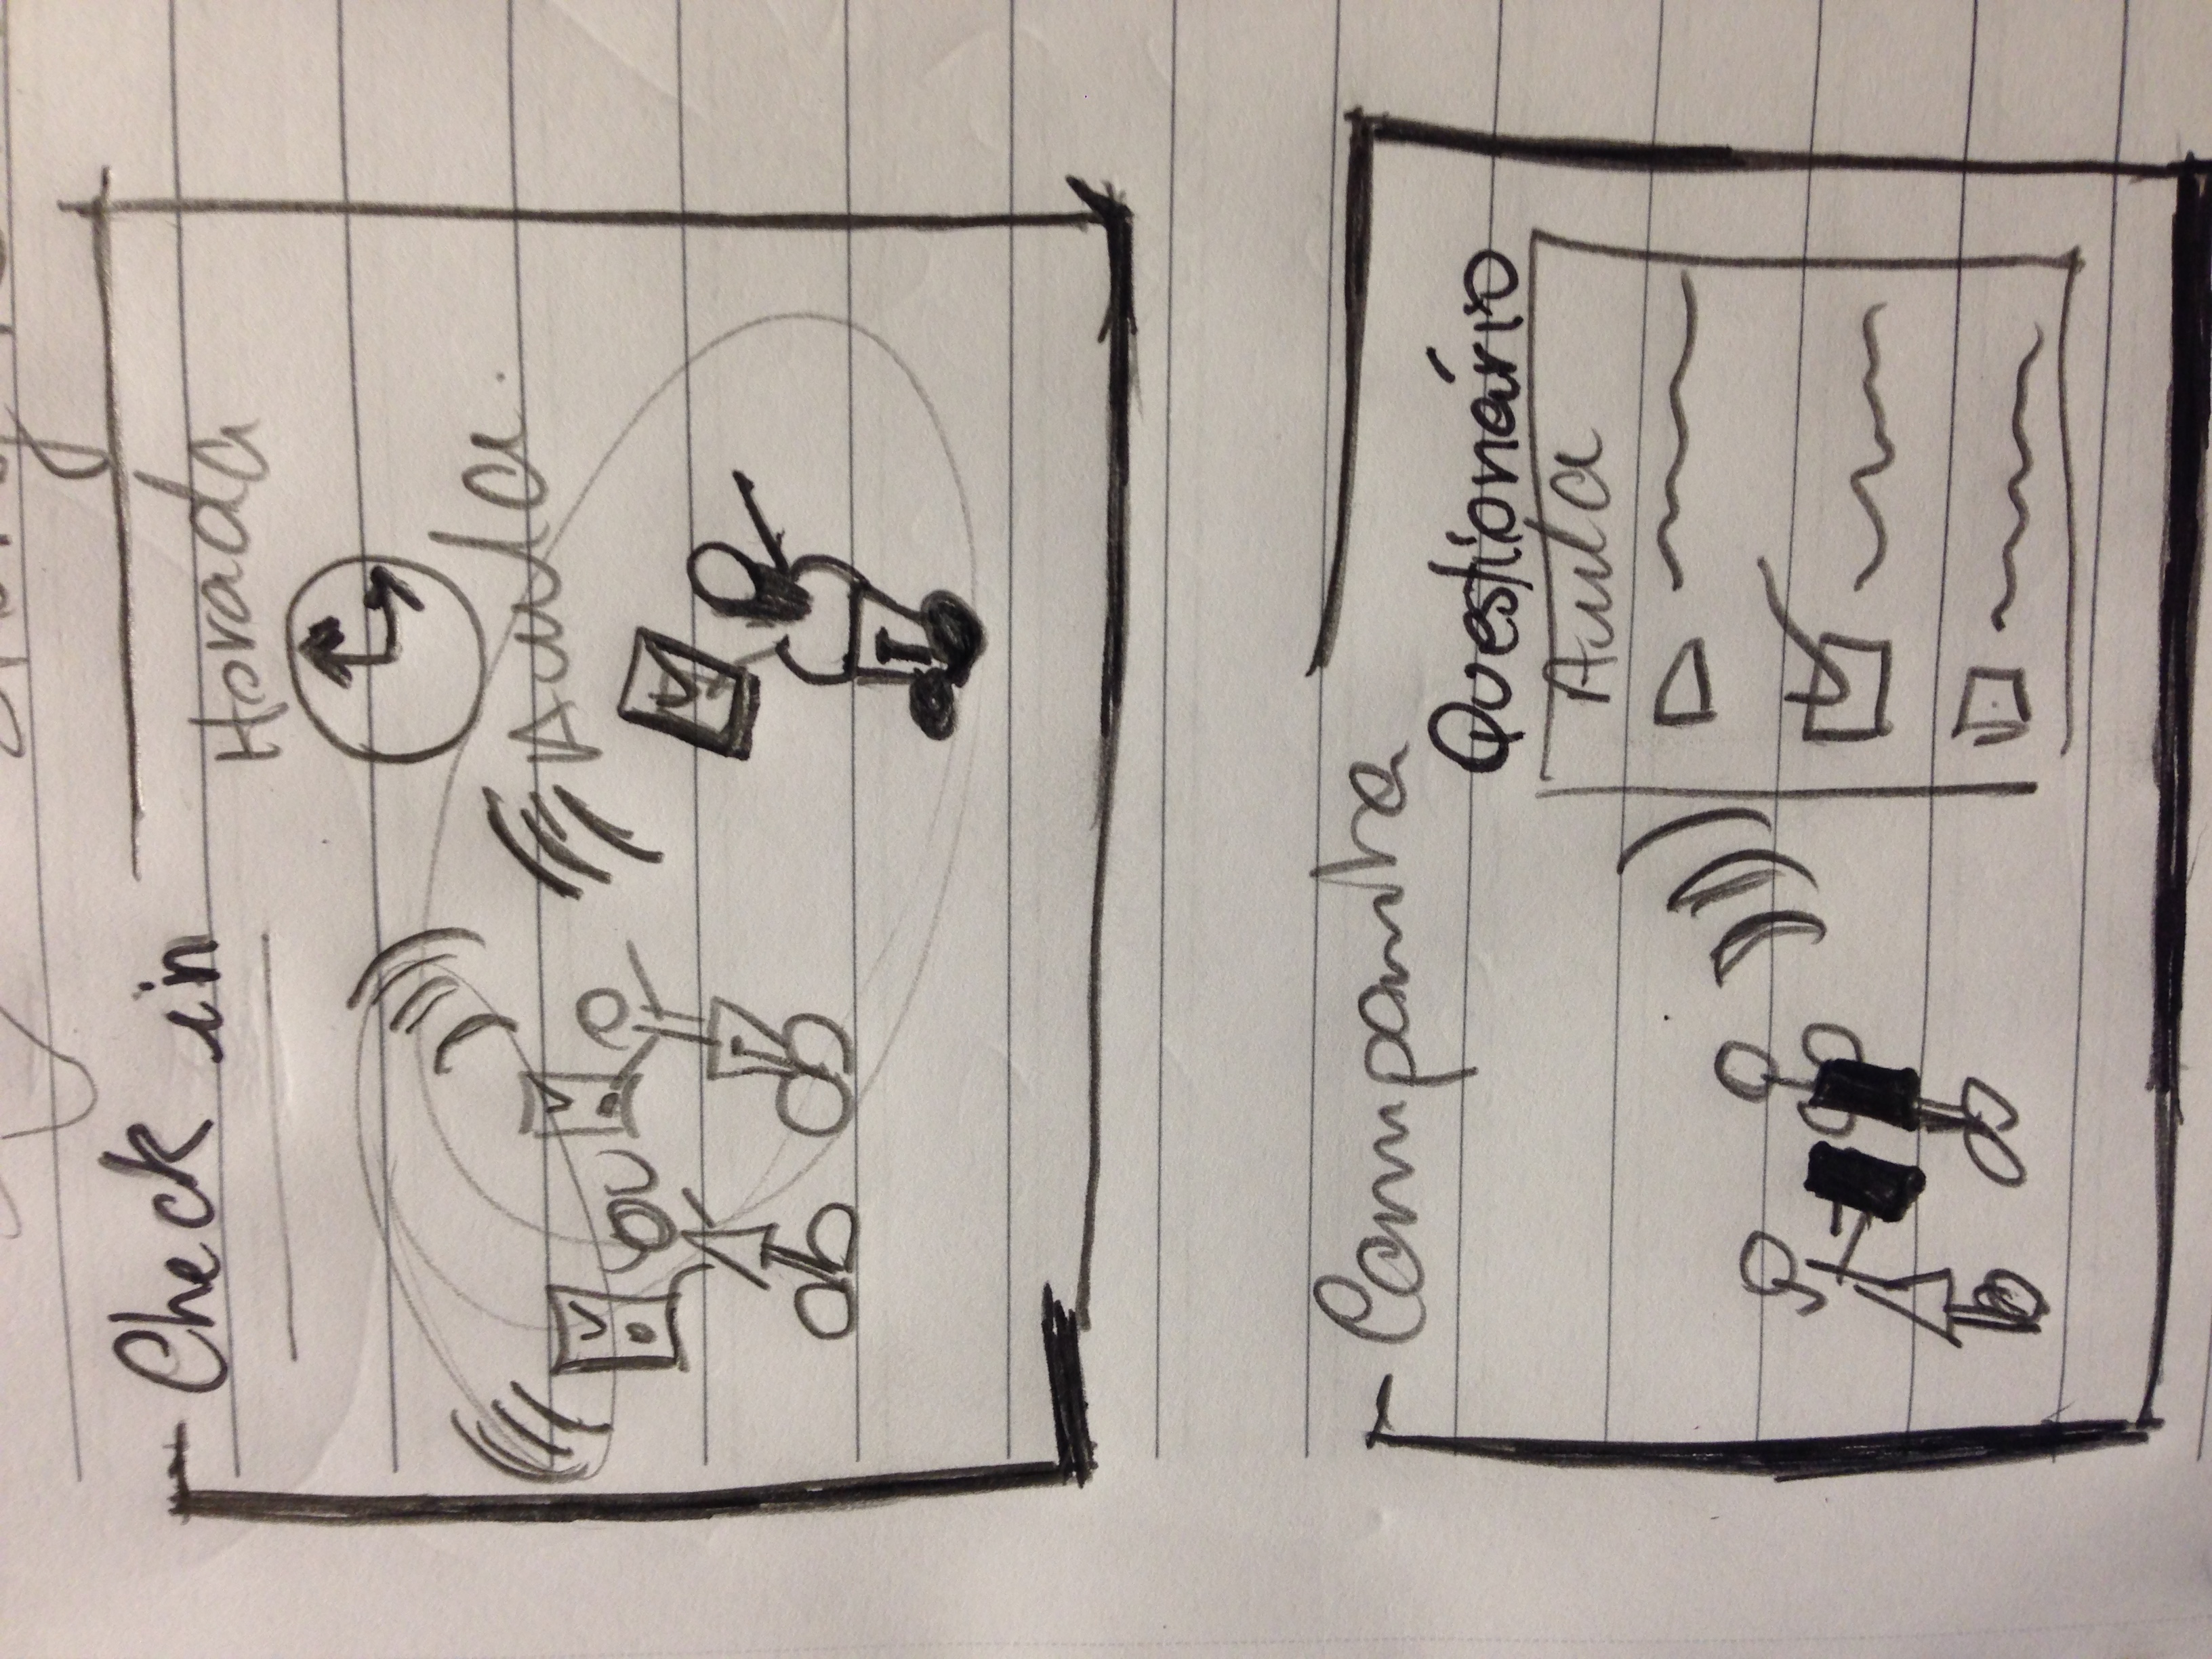 Check in
Horada
Aula.
Campanha
Questionário
Aula